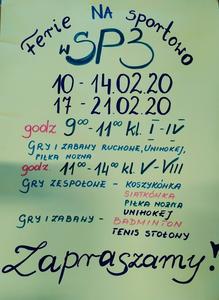 Ferie NA sportowo
w SP3
10 - 14.02.20
17 - 21.02.20
godz 9⁰⁰ - 11⁰⁰ kl. I - IV
GRY I ZABAWY RUCHOWE, UNIHOKEJ,
PIŁKA NOŻNA
godz. 11⁰⁰ - 14⁰⁰ kl. V - VIII
GRY ZESPOŁOWE - KOSZYKÓWKA
SIATKÓWKA
PIŁKA NOŻNA
UNIHOKEJ
GRY I ZABAWY - BADMINTON
TENIS STOŁOWY
Zapraszamy!